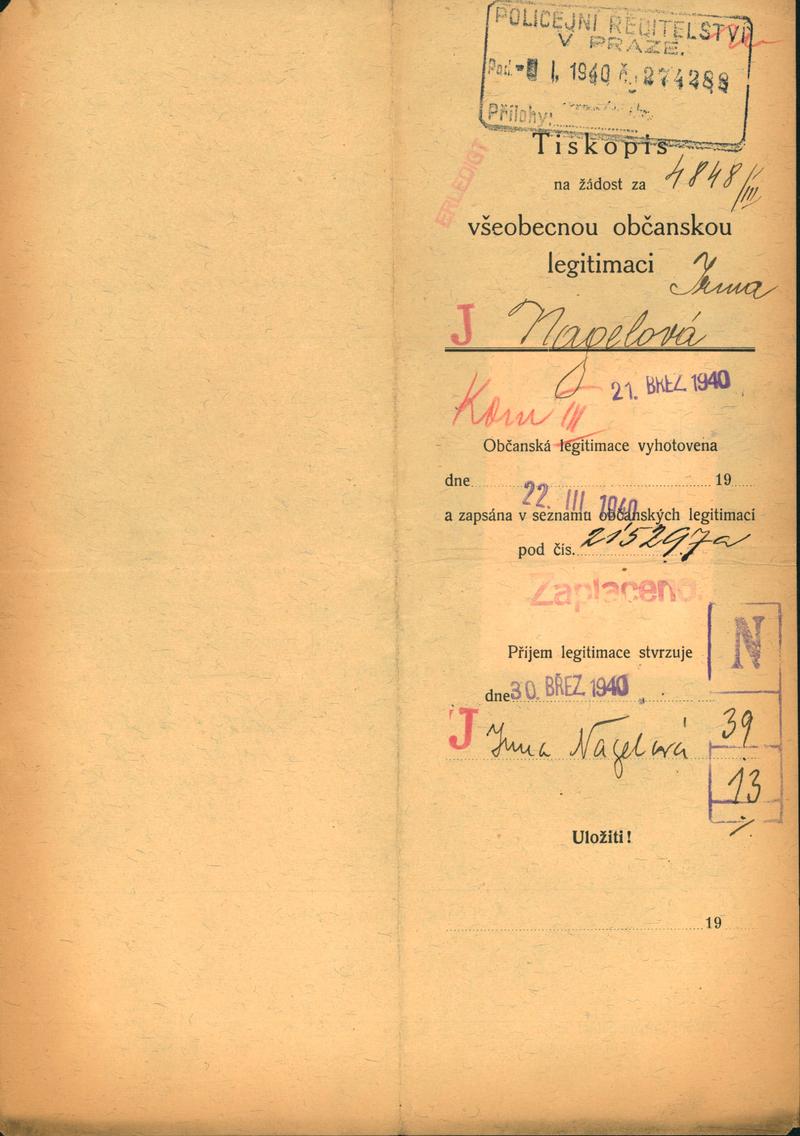 POLICEJNÍ ŘEDITELSTVÍ
V PRAZE.
Pod. 1. 1940 č. 274388
Přílohy:
Tiskopis
na žádost za 4848/III
ERLEDIGT
všeobecnou občanskou
legitimaci Irma
J Nagelová
21. BŘEZ. 1940
Kom III
Občanská legitimace vyhotovena
dne 19
22. III. 1940
a zapsána v seznamu občanských legitimací
pod čís. 215297a
Zaplaceno.
N
Příjem legitimace stvrzuje
dne 30. BŘEZ. 1940
39
J Irma Nagelová
13
Uložiti!
19